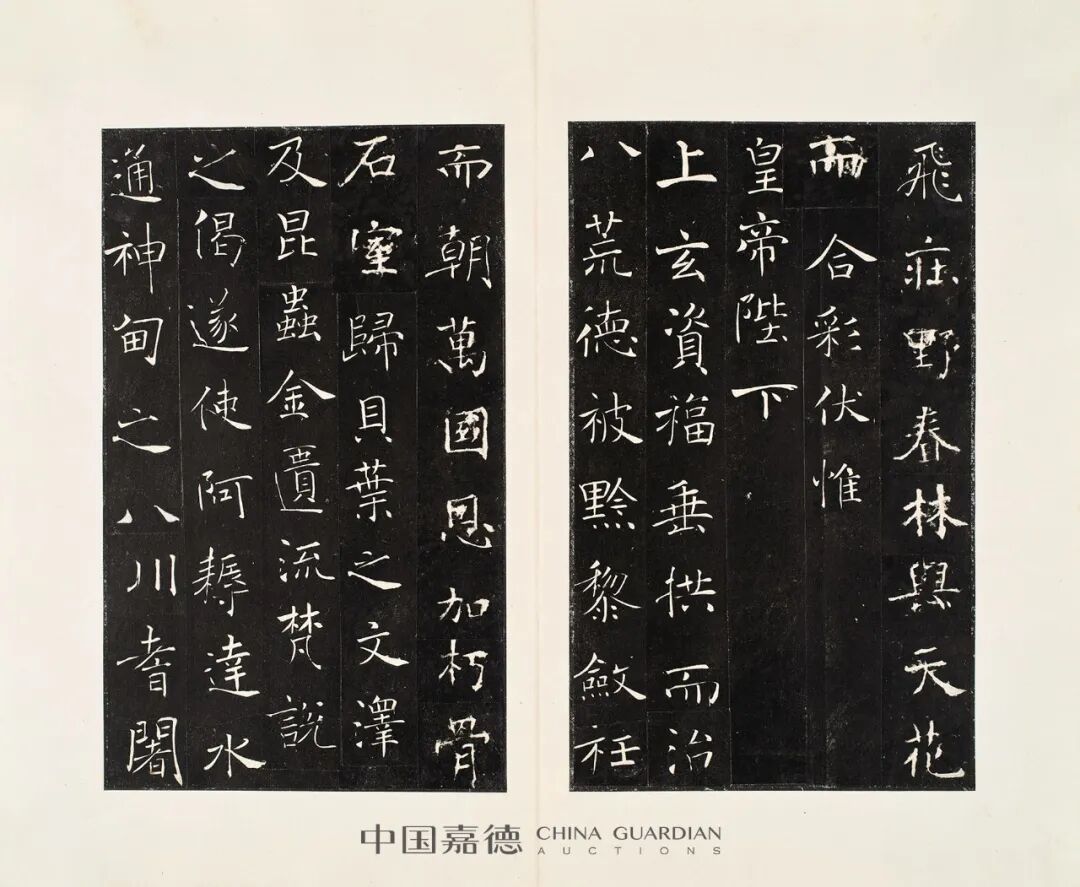 飛莊野春林與天花
而合彩伏惟
皇帝陛下
上玄資福垂拱而治
八荒德被黔黎斂衽
而朝萬國恩加朽骨
石室歸貝葉之文澤
及昆蟲金匱流梵說
之偈遂使阿耨達水
通神甸之八川耆闍
中国嘉德 CHINA GUARDIAN
AUCTIONS